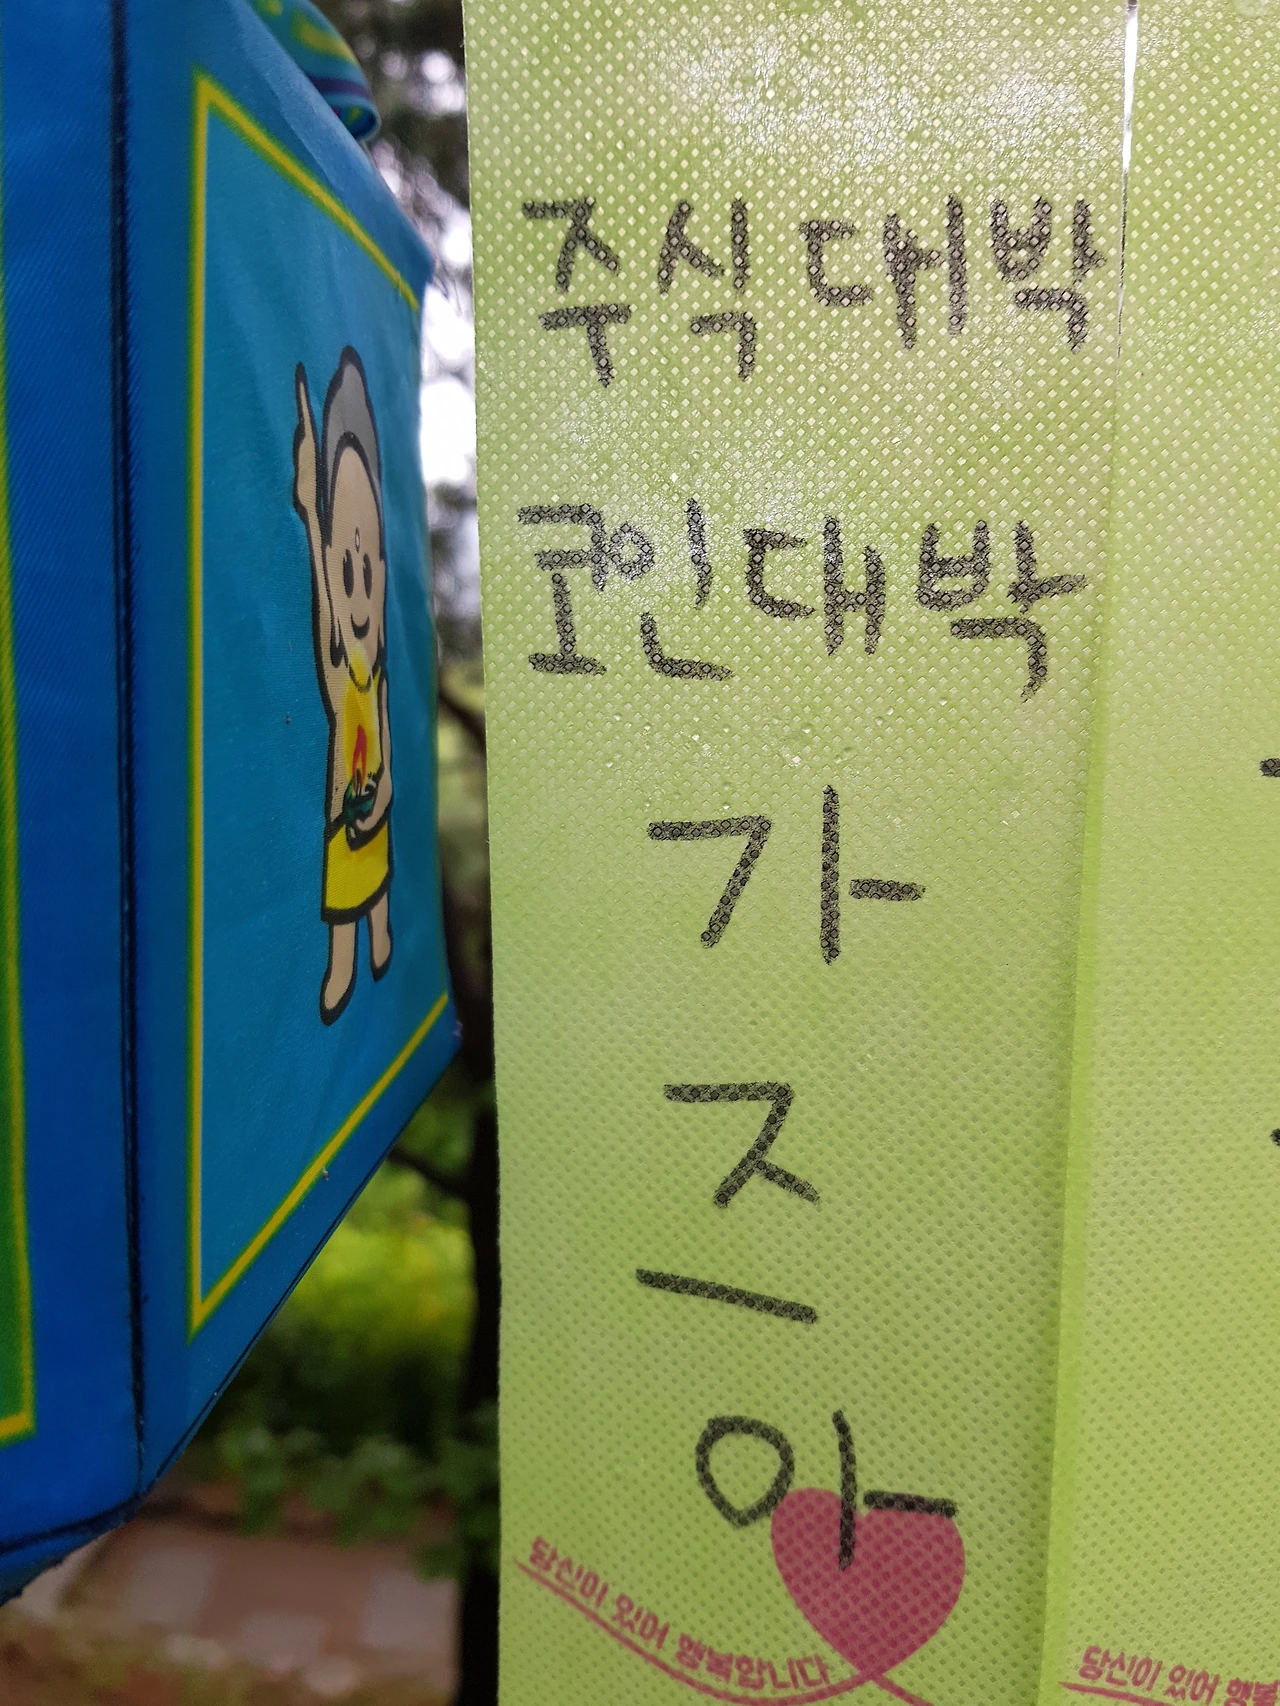 주식대박
코인대박
가
즈
아
당신이 있어 행복합니다
당신이 있어 행복